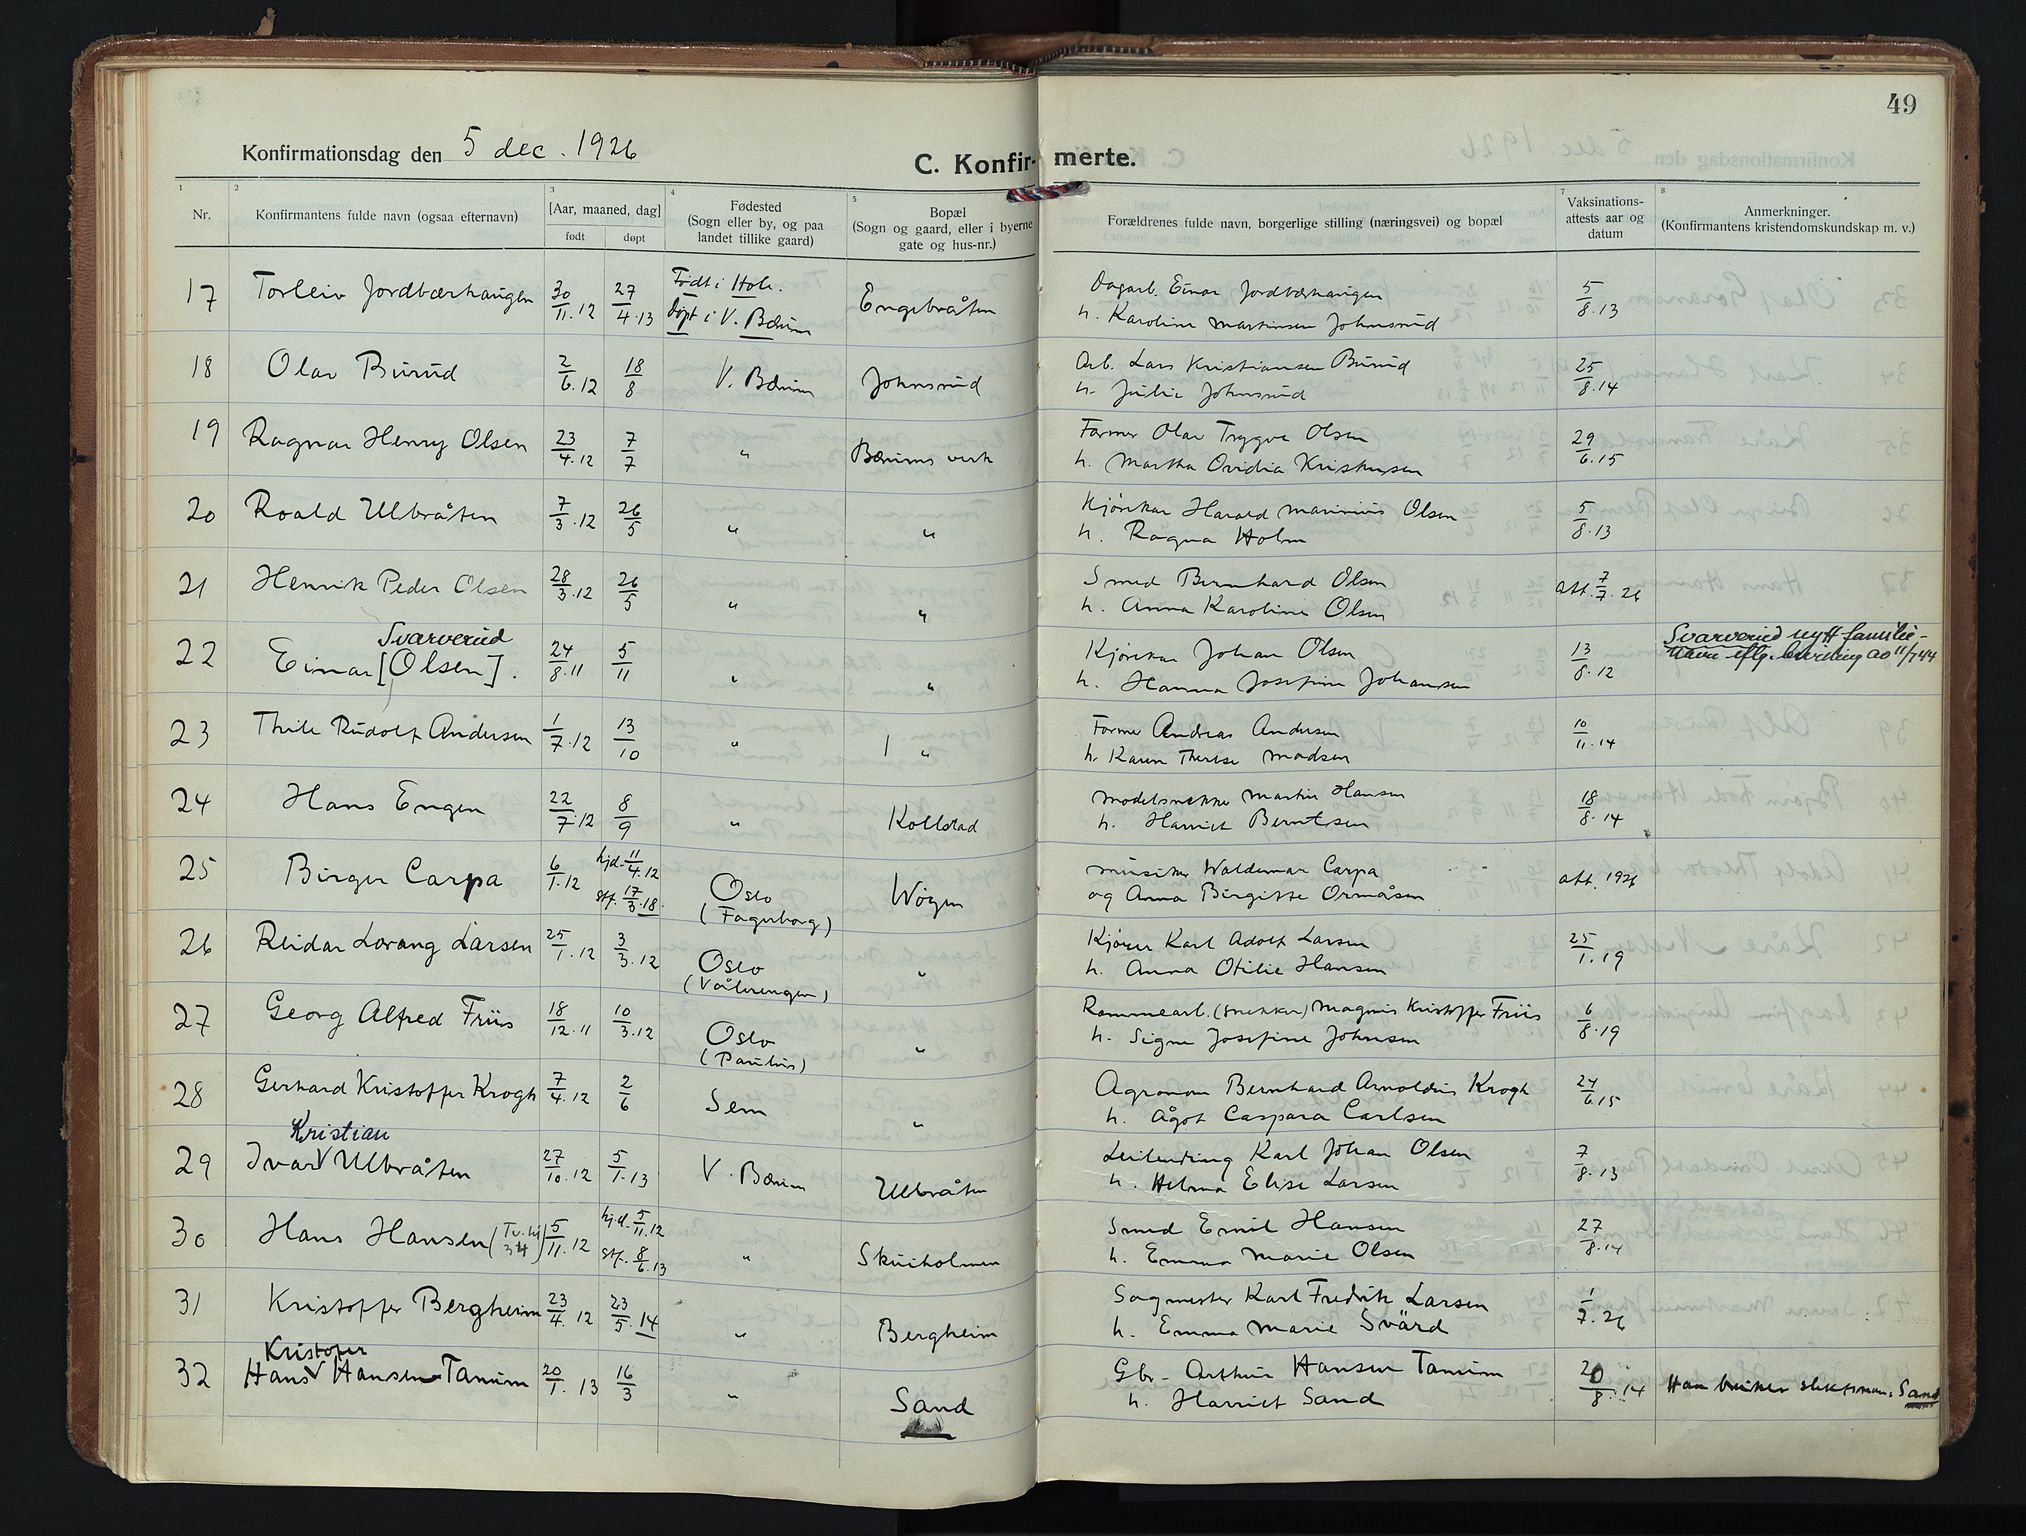 49
Konfirmationsdag den 5 dec. 1926
C. Konfir- merte.
1 2 3 4 5 7 8
Nr.
Konfirmantens fulde navn (ogsaa efternavn)
[Aar, maaned, dag]
født døpt
Fødested
(Sogn eller by, og paa
landet tillike gaard)
Bopæl
(Sogn og gaard, eller i byerne
gate og hus-nr.)
Forældrenes fulde navn, borgerlige stilling (næringsvei) og bopæl
Vaksinations-
attests aar og
datum
Anmerkninger.
(Konfirmantens kristendomskundskap m. v.)
17 Torleiv Jordbærhaugen 30/11.12 27/4.13 Født i Hole. døpt i V. Bærum Engebråten
Dagarb. Einar Jordbærhaugen 5/8.13
h. Karoline Martinsen Johnsrud
18 Olav Burud 2/6.12 18/8 V. Bærum Johnsrud
Arb. Lars Kristiansen Burud 25/8.14
h. Julie Johnsrud
19 Ragnar Henry Olsen 23/4.12 7/7 " Bærums verk
Former Olav Trygve Olsen 29/6.15
h. Martha Ovidia Kristensen
20 Roald Ulbråten 7/3.12 26/5 " "
Kjørekar Harald Marinius Olsen 5/8.13
h. Ragna Holm
21 Henrik Peder Olsen 28/3.12 26/5 " "
Smed Bernhard Olsen att. 7/7.26
h. Anna Karoline Olsen
Svarverud
22 Einar [Olsen]. 24/8.11 5/11 " "
Kjørekar Johan Olsen 13/8.12
h. Hanna Josefine Johansen
Svarverud nytt familie-
navn iflg. bevilling ao 11/7 44
23 Thile Rudolf Andersen 1/7.12 13/10 " "
Former Andreas Andersen 10/11.14
h. Karen Therese Madsen
24 Hans Engen 22/7.12 8/9 " Kollstad
Modelsnekker Martin Hansen 18/8.14
h. Harriet Berntsen
25 Birger Carpa 6/1.12 hjd. 11/4.12 stf. 17/3.18. Oslo (Fagerborg) Wøyen
Musiker Waldemar Carpa att. 1926
og Anna Birgitte Ormåsen
26 Reidar Lorang Larsen 25/1.12 3/3.12 Oslo (Vålerengen) "
Kjører Karl Adolf Larsen 25/1.19
h. Anna Otilie Hansen
27 Georg Alfred Friis 18/12.11 10/3.12 Oslo (Paulus) "
Rammearb. (snekker) Magnus Kristoffer Friis 6/8.19
h. Signe Josefine Johnsen
28 Gerhard Kristoffer Krogh 7/4.12 2/6 Sem "
Agronom Bernhard Arnoldus Krogh 24/6.15
h. Ågot Caspara Carlsen
Kristian
29 Ivar V Ulbråten 27/10.12 5/1.13 V. Bærum Ulbråten
Leilending Karl Johan Olsen 7/8.13
h. Helma Elise Larsen
30 Hans Hansen (Tv. hj 34) 5/11.12 hj.d. 5/11.12 stf. 8/6.13 " Skuiholmen
Smed Emil Hansen 27/8.14
h. Emma Marie Olsen
31 Kristoffer Bergheim 23/4.12 23/5.14 " Bergheim
Sagmester Karl Fredrik Larsen 1/7.26
h. Emma Marie Svärd
Kristofer
32 Hans V Hansen-Tanum 20/1.13 16/3 " Sand
Gbr. Arthur Hansen Tanum 20/8.14 Han bruker slektsnavn. Sand
h. Harriet Sand